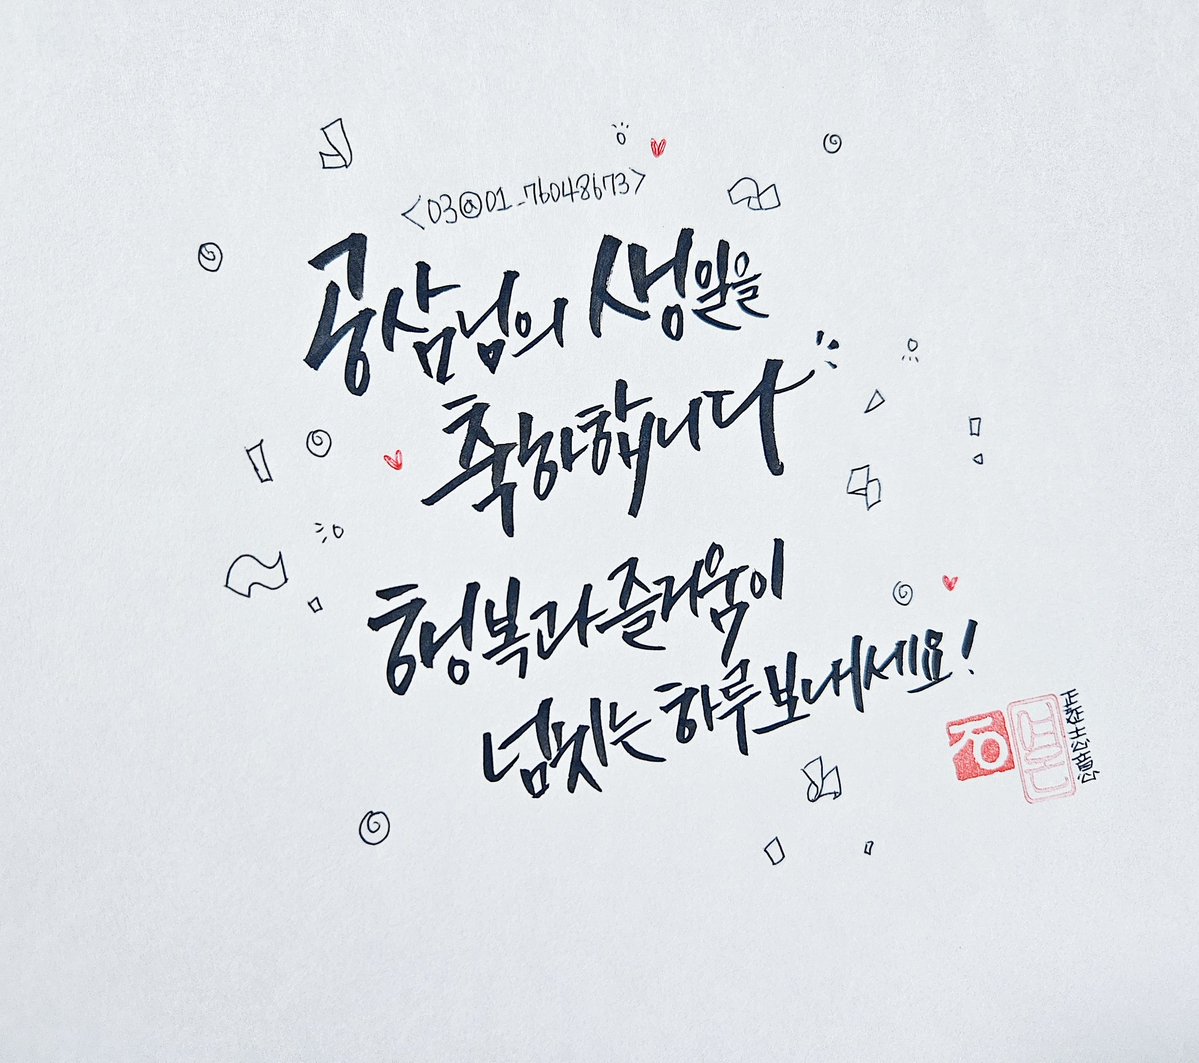 <03@01_76048673>
공삼님의 생일을
축하합니다
행복과 즐거움이
넘치는 하루 보내세요!